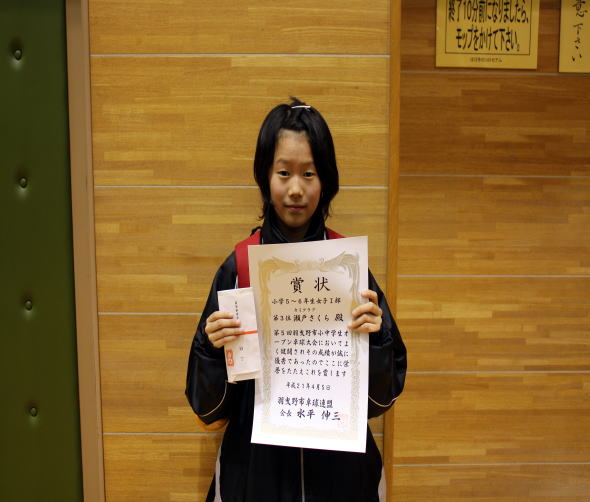 終了10分前になりましたら、
モップをかけて下さい。
意下さい
賞状
小学5~6年生女子Ⅰ部
第3位 瀬戸さくら 殿
第5回羽曳野市小中学生オ
ープン卓球大会においてよ
く健闘されその成績が誠に
優秀であったのでここに栄
誉をたたえこれを賞します
平成21年4月5日
羽曳野市卓球連盟
会長 水平 伸三